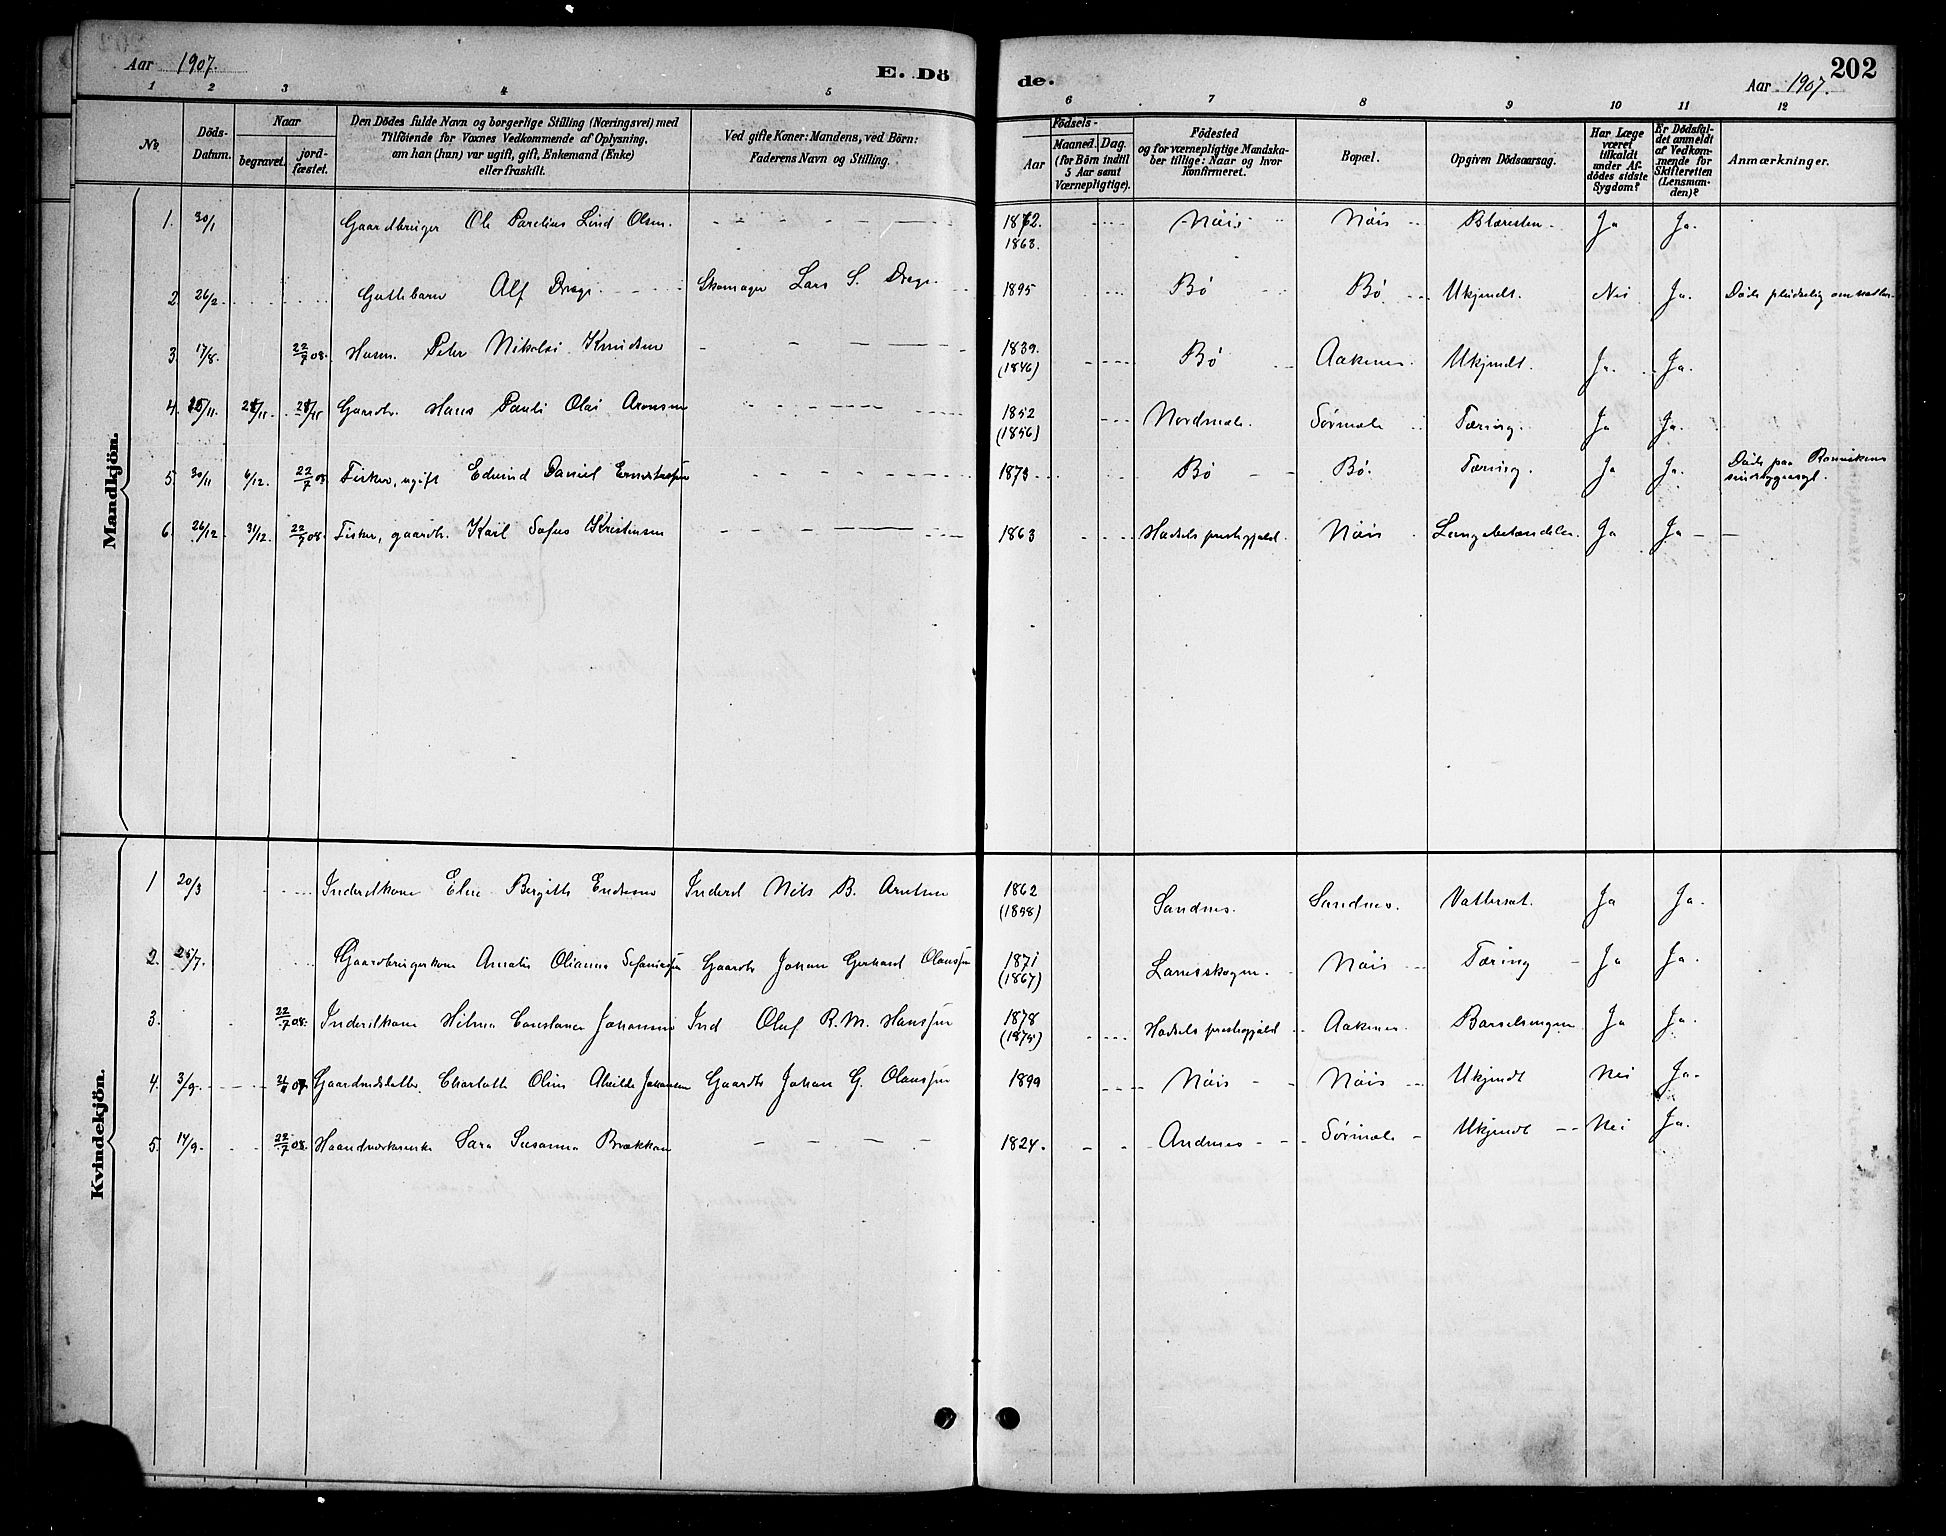 Aar 1907. E. Dö de. Aar 1907. 202
1 2 3 4 5 6 7 8 9 10 11 12
No. Döds-Datum. Naar begravet. jord-fæstet. Den Dödes fulde Navn og borgerlige Stilling (Næringsvei) med Tilföiende for Voxnes Vedkommende af Oplysning, om han (hun) var ugift, gift, Enkemand (Enke) eller fraskilt. Ved gifte Koner: Mandens, ved Börn: Faderens Navn og Stilling. Födsels- Aar Maaned. Dag. (for Börn indtil 5 Aar samt Værnepligtige). Födested og for værnepligtige Mandskaber tillige: Naar og hvor konfirmeret. Bopæl. Opgiven Dödsaarsag. Har Læge været tilkaldt under Afdödes sidste Sygdom? Er Dödsfaldet anmeldt af Vedkommende for Skifteretten (Lensmanden)? Anmærkninger.
Mandkjön.
1. 30/1 Gaardbruger Ole Parelius Lind Olsen. 1872. 1863. Nöis Nöis Blæresten. Ja Ja.
2. 26/2 Guttebarn Alf Drege Skomager Lars S. Drege 1895 Bö Bö Ukjendt. Nei Ja. Döde pludselig om natten.
3. 17/8. 22/7 08. Husm. Peter Nikolai Knudsen 1839. (1846) Bö Aakenes Ukjendt. Ja. Ja.
4. 25/11. 28/11. 28/11 Gaardbr. Hans Pauli Olai Aronsen 1852 (1856) Nordmele. Sörmele Tæring. Ja Ja.
5. 30/11 6/12. 22/7 08 Fisker, ugift Edvind Daniel Ernstussen 1873 Bö Bö. Tæring. Ja Ja. Döde paa Rønviken sindssygeasyl.
6. 26/12 31/12. 22/7 08. Fisker, gaardbr. Karl Sofus Kristensen 1863 Hadsels prestegjeld. Nöis Lungebetændelse. Ja Ja
Kvindekjön.
1 20/3 Inderstkone Eline Bergitte Endresen Inderst Nils B. Arntsen 1862 (1858) Sandnes. Sandnes. Vattersot. Ja Ja.
2. 25/7. Gaardbrugerkone Amalie Olianna Gaardbr Johan Gerhard Olaussen 1871 (1867) Laneskogen. Nöis Tæring Ja Ja.
3. 22/7 08. Inderstkone Hilma Constance Johannes Ind Oluf R. M. Hanssen 1878 (1875) Hadsels prestegjeld Aakenes. Barselsengen Ja Ja.
4. 3/9. 07. Gaardmdsdatter. Charlotte Oline Alvilde Johansen Gaardbr Johan G. Olaussen 1899 Nöis Nöis Ukjendt Nei Ja.
5. 14/9. 22/7 08. Haandværkerenke Sara Susanna Brækkan 1824. Andenes Sörmele Ukjendt Nei Ja.